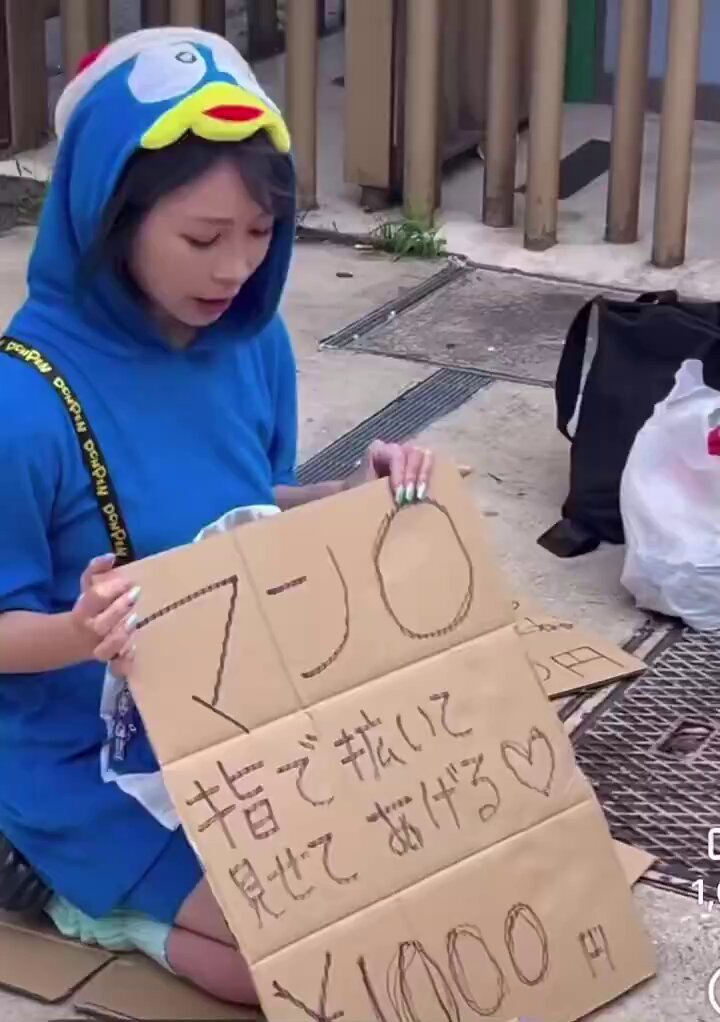 マン〇
指で拡いて
見せてあげる♡
¥1000円
円
DONPEN DONPEN DONPEN DONPEN